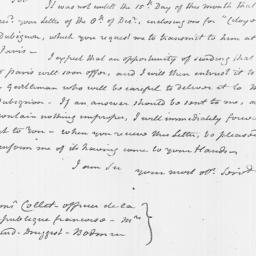 It was not until the 10th Day of this month that
rec'd your letter of the 8th of Decr, enclosing one for "Cito
Dubignon, which you request me to transmit to him at
Paris—
I expect that an opportunity of sending that
to paris will soon offer, and I will then entrust it to
Gentleman who will be careful to deliver it to M
Dubignon. If an answer should be sent to me, a
contain nothing improper, I will immediately forwa
it to You — when you receive this Letter, be pleased
inform me of its having come to your Hands—
I am Sir your most obt. Servt
Collet — officer de la
publique francoise —
Bodmin